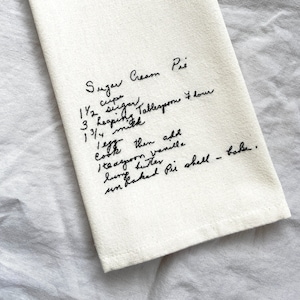 Sugar Cream Pie
1 1/2 cups sugar
3 heaping Tablespoon flour
1 3/4 milk
1 egg
Cook then add
1 teaspoon vanilla
lump butter
unbaked Pie shell - bake.